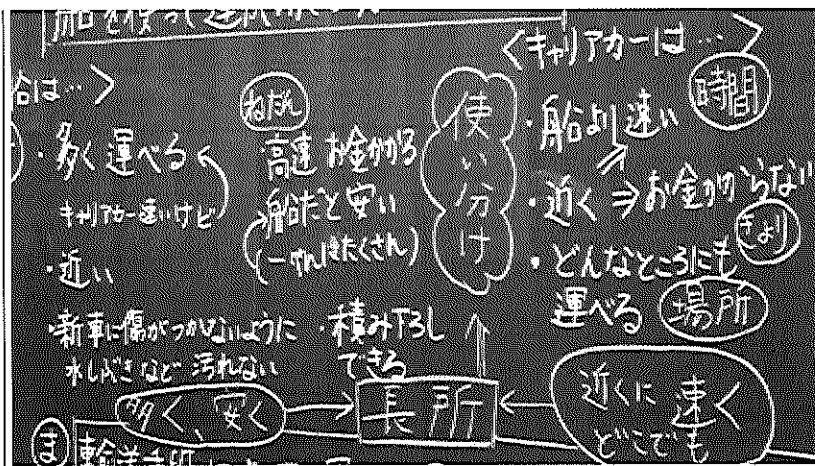 船を使って運
船は…〉
・多く運べる
キャリアカー速いけど
・近い
・新車に傷がつかないように
水しぶきなど汚れない
ねだん
高速 お金がかかる
船だと安い
・積み下ろし
できる
使い分け
〈キャリアカーは…〉
・船より速い 時間
・近く⇒お金がかからない
きょり
・どんなところにも
運べる 場所
多く、安く → 長所 ← 近くに 速く
どこでも
ま 輸送手段